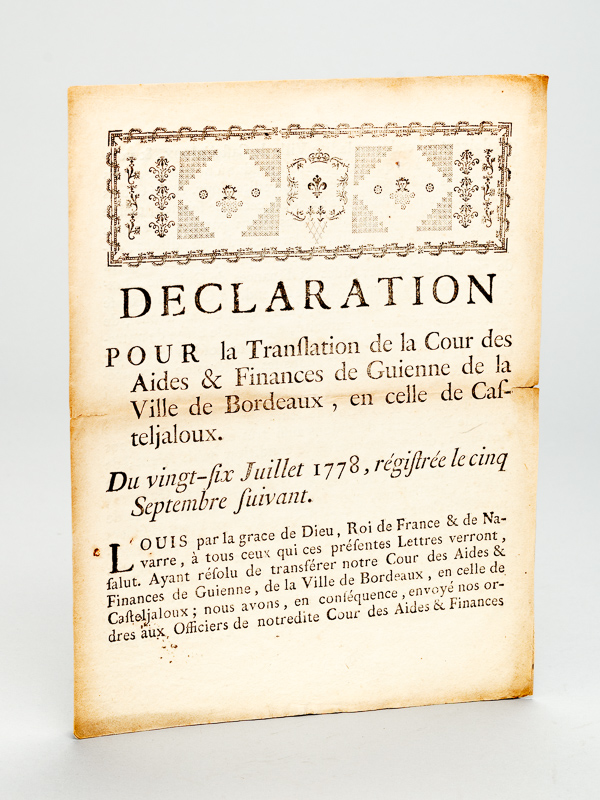 DECLARATION
POUR la Tranſlation de la Cour des
Aides & Finances de Guienne de la
Ville de Bordeaux , en celle de Caſ-
teljaloux.
Du vingt-ſix Juillet 1778, régiſtrée le cinq
Septembre ſuivant.
LOUIS par la grace de Dieu, Roi de France & de Na-
varre, à tous ceux qui ces préſentes Lettres verront,
ſalut. Ayant réſolu de transférer notre Cour des Aides &
Finances de Guienne, de la Ville de Bordeaux, en celle de
Caſteljaloux ; nous avons, en conſéquence, envoyé nos or-
dres aux Officiers de notredite Cour des Aides & Finances